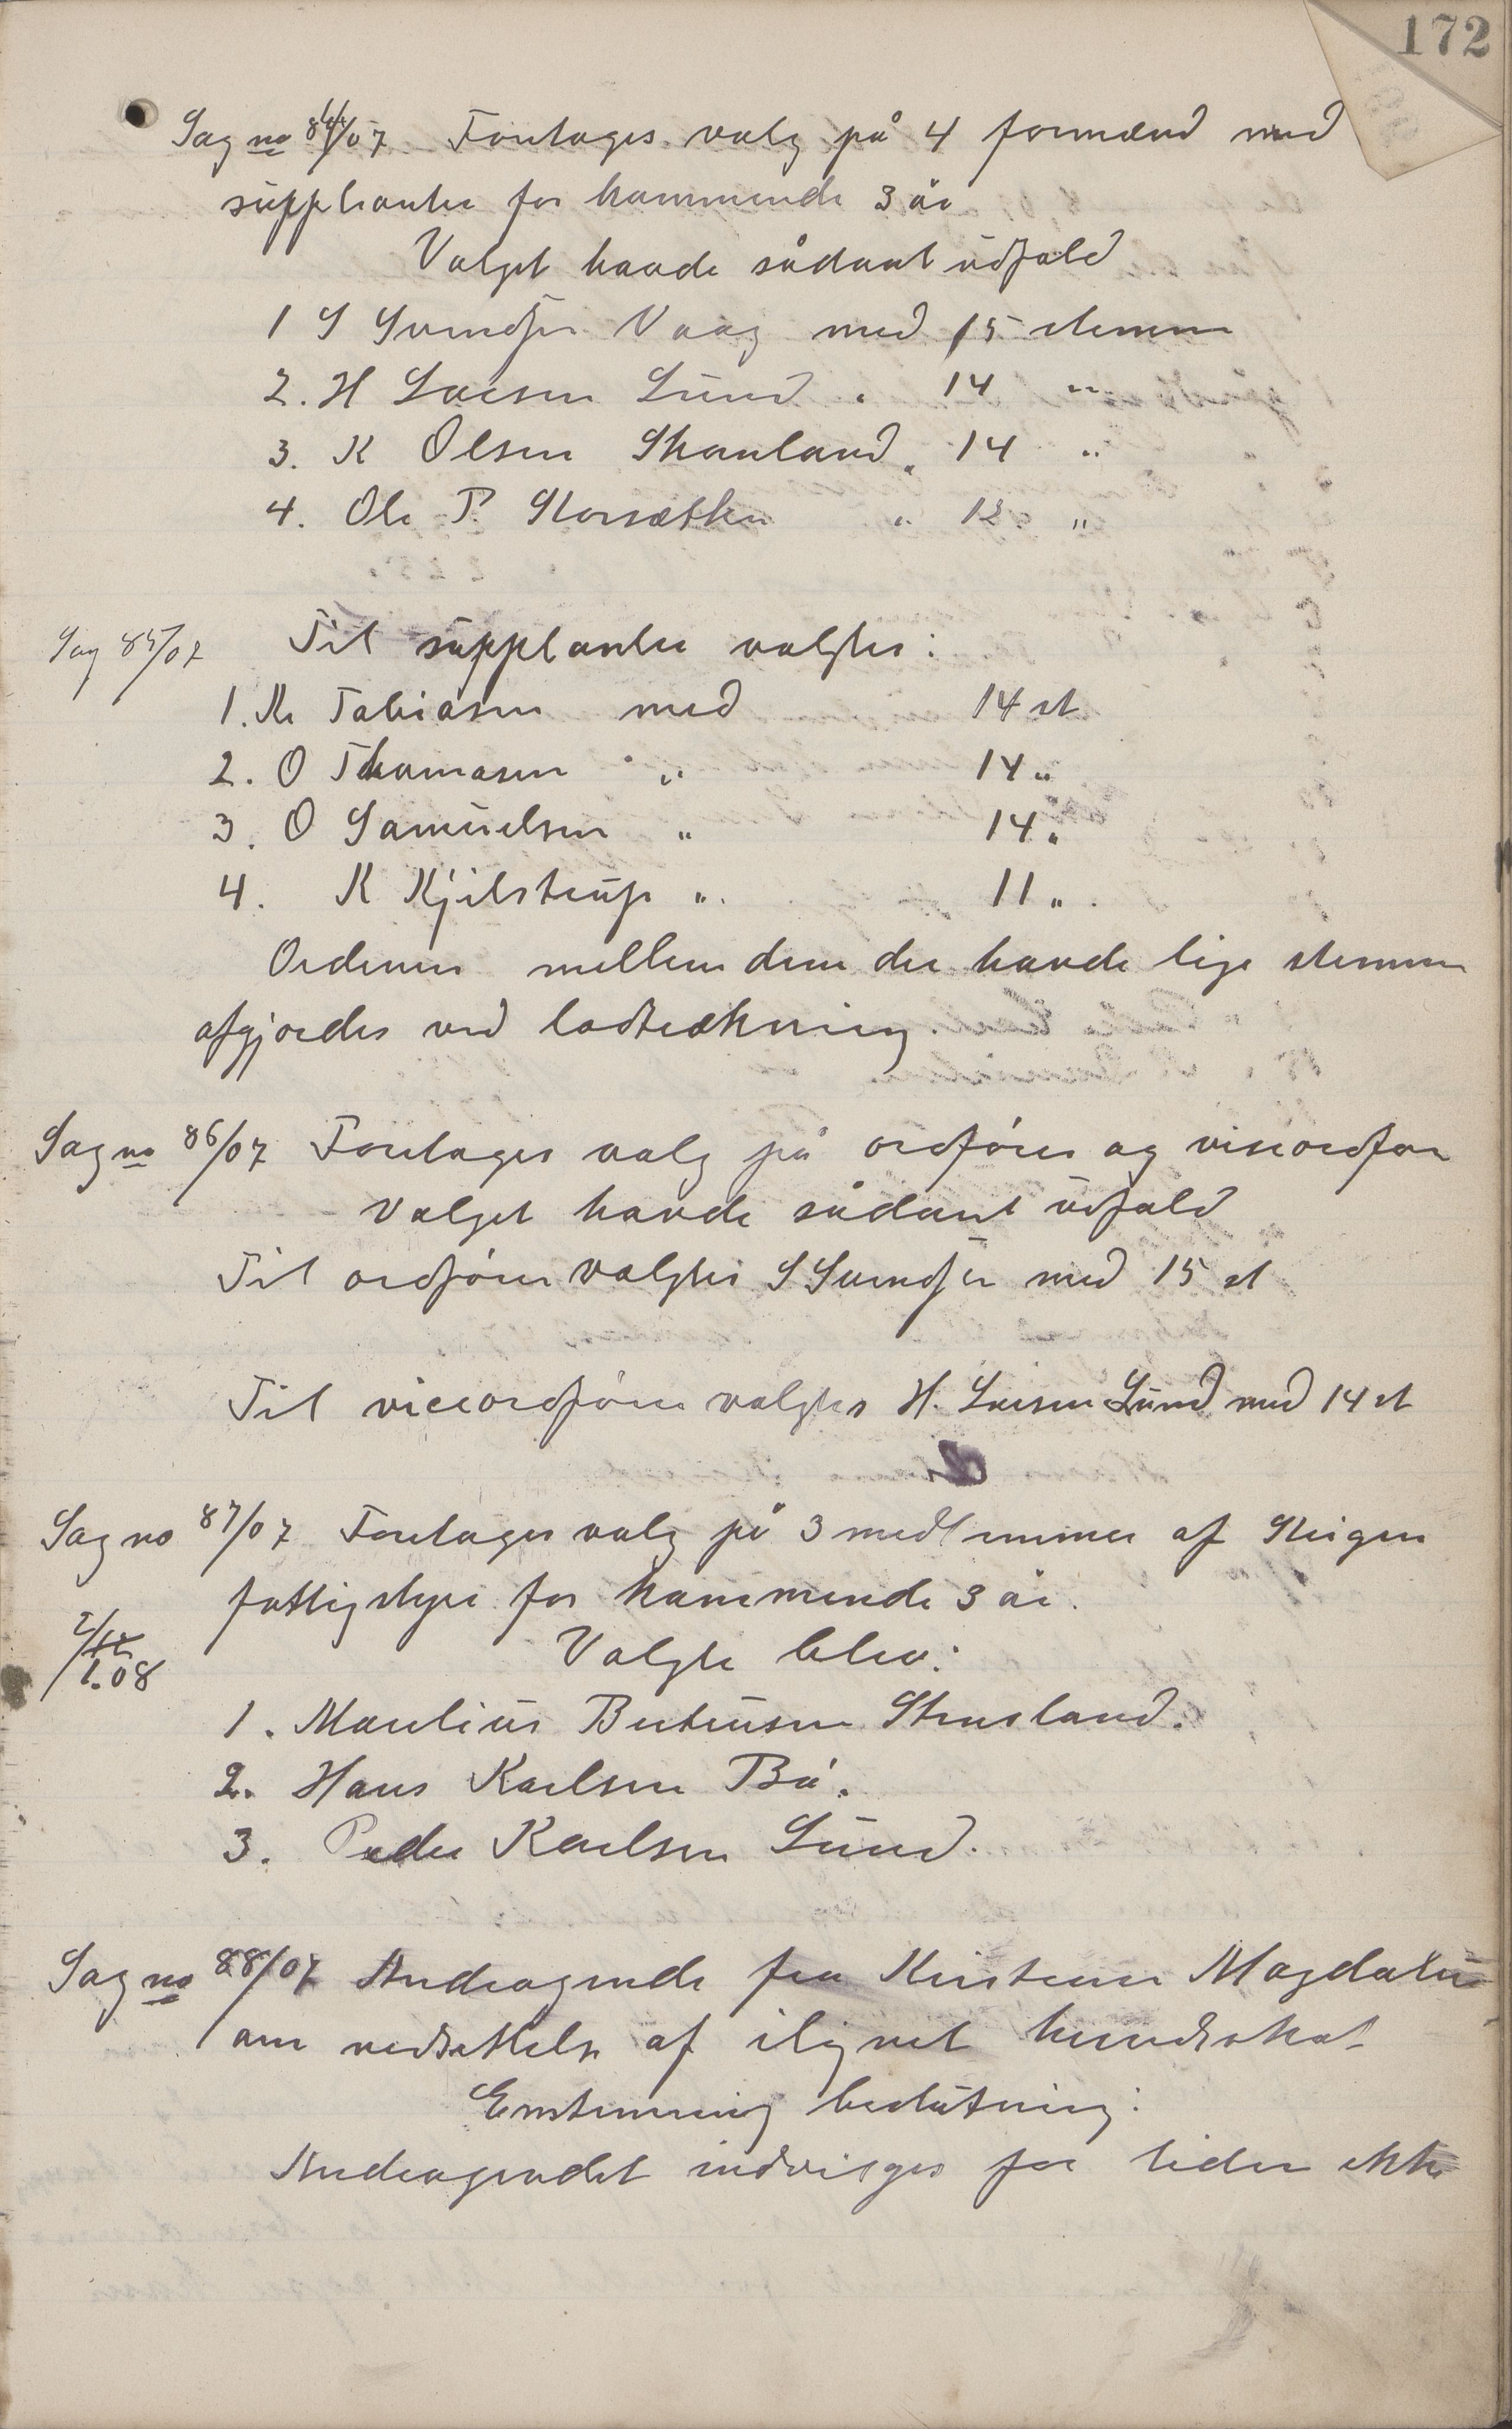 172
Sag no 84/07 Foretages valg på 4 formænd med
suppleanter for kommende 3 år
Valget havde sådant udfald
1 S Svendsen Vaag med 15 stemmer
2. H Larsen Lund " 14 "
3. K Olsen Skanland " 14 "
4. Ole P. Storsætter " 12 "
Sag 85/07 Til suppleanter valgtes:
1. K. Tobiasen med 14 st
2. O Thomasen " 14 "
3. O Samuelsen " 14 "
4. K Kjilstrup " 11 "
Ordenen mellem dem der havde lige stemmer
afgjordes ved lodtrækning.
Sag no 86/07 Foretages valg på ordfører og viceordfør
Valget havde sådant udfald
Til ordfører valgtes S Svendsen med 15 st
Til viceordfører valgtes H. Larsen Lund med 14 st
Sag no 87/07 Foretages valg på 3 medlemmer af Steigen
fattigstyre for kommende 3 år.
1.08
Valgte blev:
1. Maulius Berteusen Stensland.
2. Hans Karlsen Bø.
3. Peder Karlsen Lund.
Sag no 88/07 Andragende fra Magdalen
om nedsættelse af ilignet hundeskat
Enstemmig beslutning:
Andragendet indvilges for tiden ikke